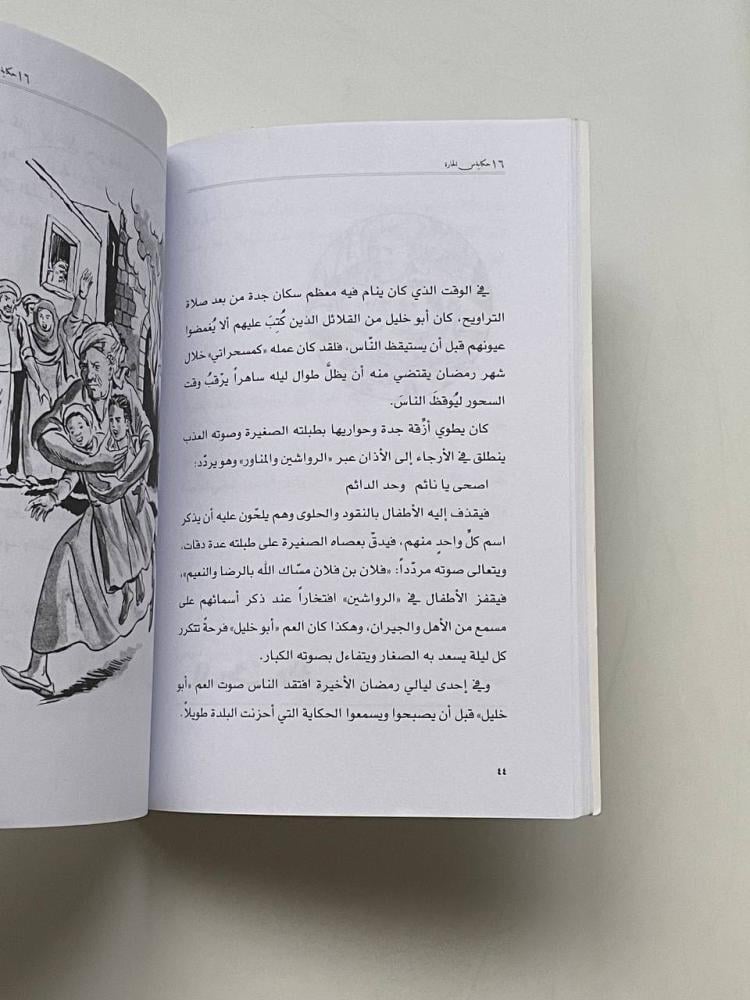 ١٦ حكاية من الحارة
في الوقت الذي كان ينام فيه معظم سكان جدة من بعد صلاة
التراويح، كان أبو خليل من القلائل الذين كُتِبَ عليهم ألا يُغمضوا
عيونهم قبل أن يستيقظ النّاس، فلقد كان عمله «كمسحراتي» خلال
شهر رمضان يقتضي منه أن يظلَّ طوال ليله ساهراً يرْقبُ وقت
السحور ليُوقظَ الناسَ.
كان يطوي أزِّقة جدة وحواريها بطبلته الصغيرة وصوته العذب
ينطلق في الأرجاء إلى الأذان عبر «الرواشين والمناور» وهو يردّد:
اصحى يا نائم وحد الدائم
فيقذف إليه الأطفال بالنقود والحلوى وهم يلحّون عليه أن يذكر
اسم كلِّ واحدٍ منهم، فيدقّ بعصاه الصغيرة على طبلته عدة دقات،
ويتعالى صوته مردّداً: «فلان بن فلان مسّاك الله بالرضا والنعيم»،
فيقفز الأطفال في «الرواشين» افتخاراً عند ذكر أسمائهم على
مسمع من الأهل والجيران، وهكذا كان العم «أبو خليل» فرحةً تتكرر
كل ليلة يسعد به الصغار ويتفاءل بصوته الكبار.
وفي إحدى ليالي رمضان الأخيرة افتقد الناس صوت العم «أبو
خليل» قبل أن يصبحوا ويسمعوا الحكاية التي أحزنت البلدة طويلاً.
٤٤
١٦ حكاية